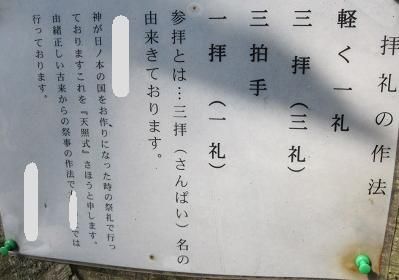 拝礼の作法
軽く一礼
三拝(三礼)
三拍手
一拝(一礼)
参拝とは…三拝(さんぱい)名の
由来きております。
神が日ノ本の国をお作りになった時の祭礼で行っ
ておりますこれを『天照式』さほうと申します。
由緒正しい古来からの祭事の作法で
では
行っております。